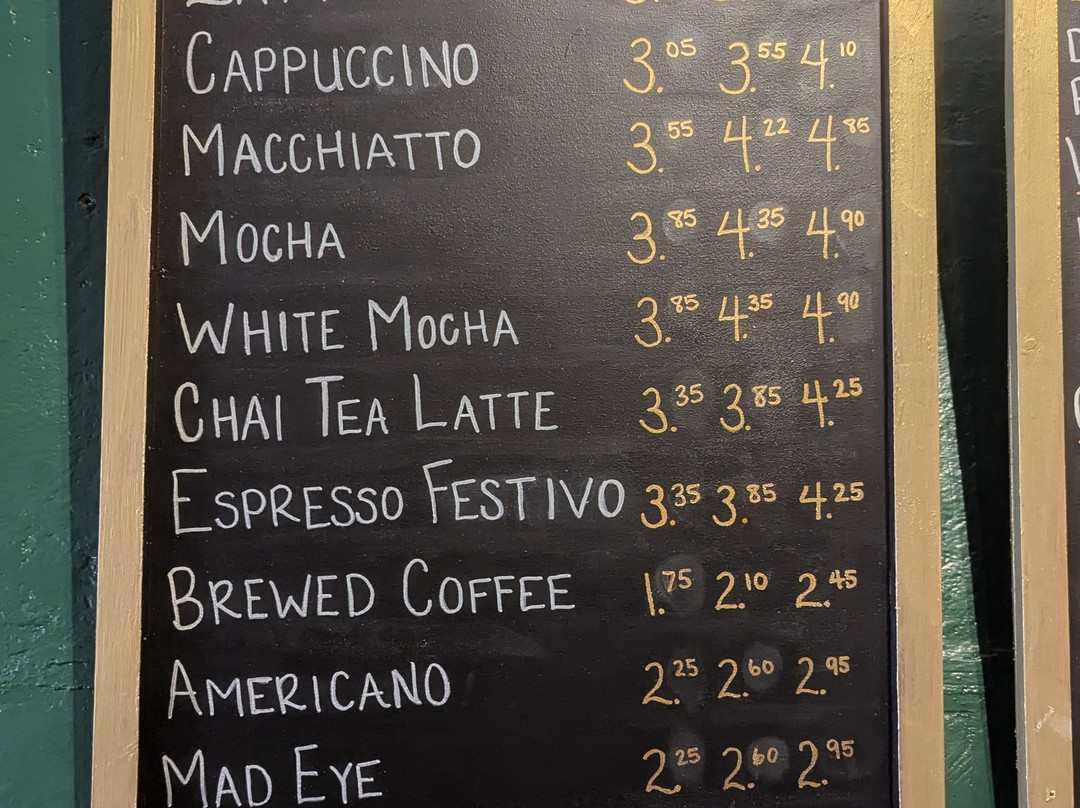 CAPPUCCINO 3.05 3.55 4.10
MACCHIATTO 3.55 4.22 4.85
MOCHA 3.85 4.35 4.90
WHITE MOCHA 3.85 4.35 4.90
CHAI TEA LATTE 3.35 3.85 4.25
ESPRESSO FESTIVO 3.35 3.85 4.25
BREWED COFFEE 1.75 2.10 2.45
AMERICANO 2.25 2.60 2.95
MAD EYE 2.25 2.60 2.95